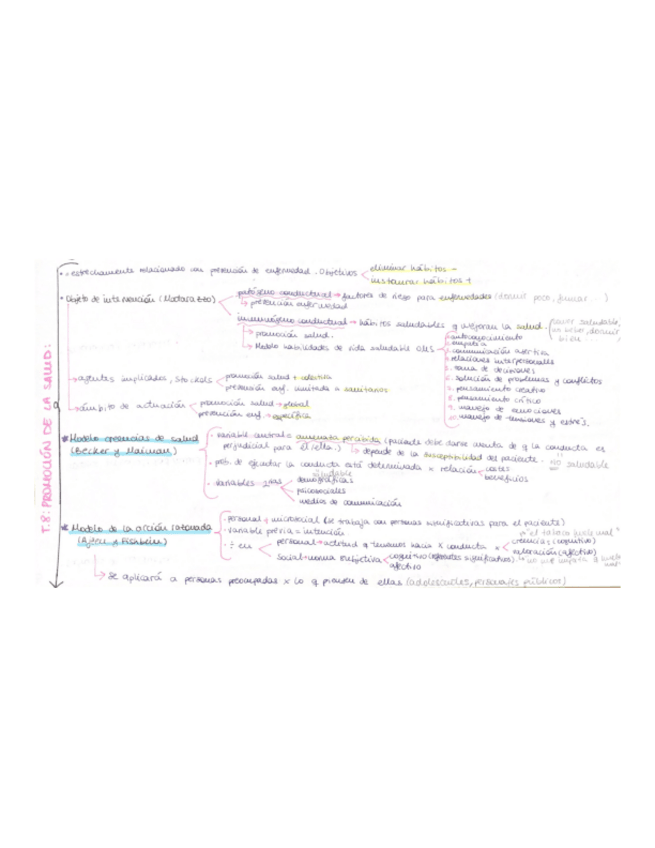 T.8: PROMOCIÓN DE LA SALUD:
· estrechamente relacionado con prevención de enfermedad. Objetivos
eliminar hábitos -
instaurar hábitos +
· Objeto de intervención (Matarazzo)
patógeno conductual → factores de riesgo para enfermedades (dormir poco, fumar...)
↳ prevención enfermedad
inmunógeno conductual → hábitos saludables q mejoran la salud.
(comer saludable, dormir bien...)
↳ promoción salud.
↳ Modelo habilidades de vida saludable OMS
1. autoconocimiento
2. empatía
3. comunicación asertiva
4. relaciones interpersonales
5. toma de decisiones
6. solución de problemas y conflictos
7. pensamiento creativo
8. pensamiento crítico
9. manejo de emociones
10. manejo de tensiones y estrés.
→ agentes implicados, Stockols
promoción salud + colectiva
prevención enf. limitada a sanitarios
→ ámbito de actuación
promoción salud → global
prevención enf. → específica
* Modelo creencias de salud
(Becker y Maiman)
· variable central = amenaza percibida (paciente debe darse cuenta de q la conducta es
perjudicial para él/ella.) ↳ depende de la susceptibilidad del paciente.
· prob. de ejecutar la conducta está determinada x relación
no saludable
saludable
costes
beneficios
· variables 2rias
demográficas
psicosociales
medios de comunicación
* Modelo de la acción razonada
(Ajzen y Fishbein)
· personal + microsocial (se trabaja con personas significativas para el paciente)
· variable previa = intención
· ÷ en
personal → actitud q tenemos hacia x conducta x
"el tabaco huele mal"
creencias (cognitivo)
valoración (afectivo)
social → norma subjetiva
cognitivo (referentes significativos).
afectivo
↳ se aplicará a personas preocupadas x lo q piensen de ellas (adolescentes, personajes públicos)